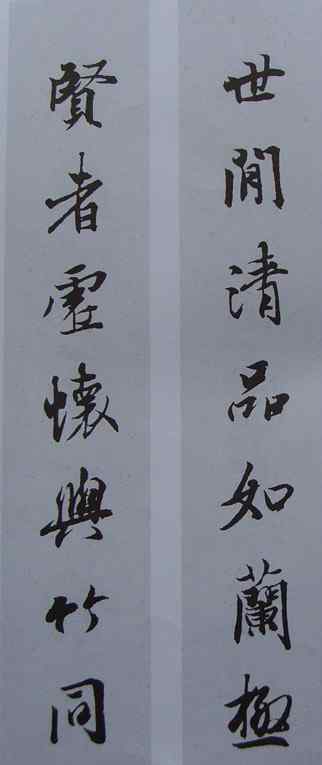 世間清品如蘭極
賢者虛懷與竹同